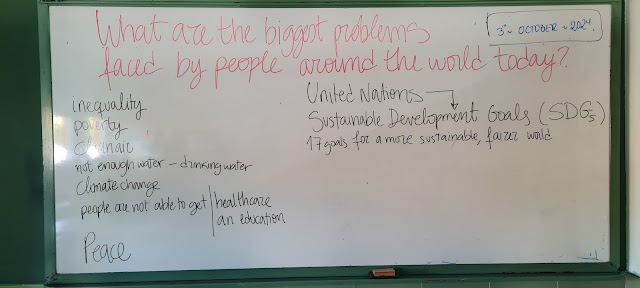 What are the biggest problems
faced by people around the world today?
3rd OCTOBER 2024
inequality
poverty
not enough water – drinking water
Climate change
people are not able to get healthcare
an education
Peace
United Nations
Sustainable Development Goals (SDGs)
17 goals for a more sustainable, fairer world